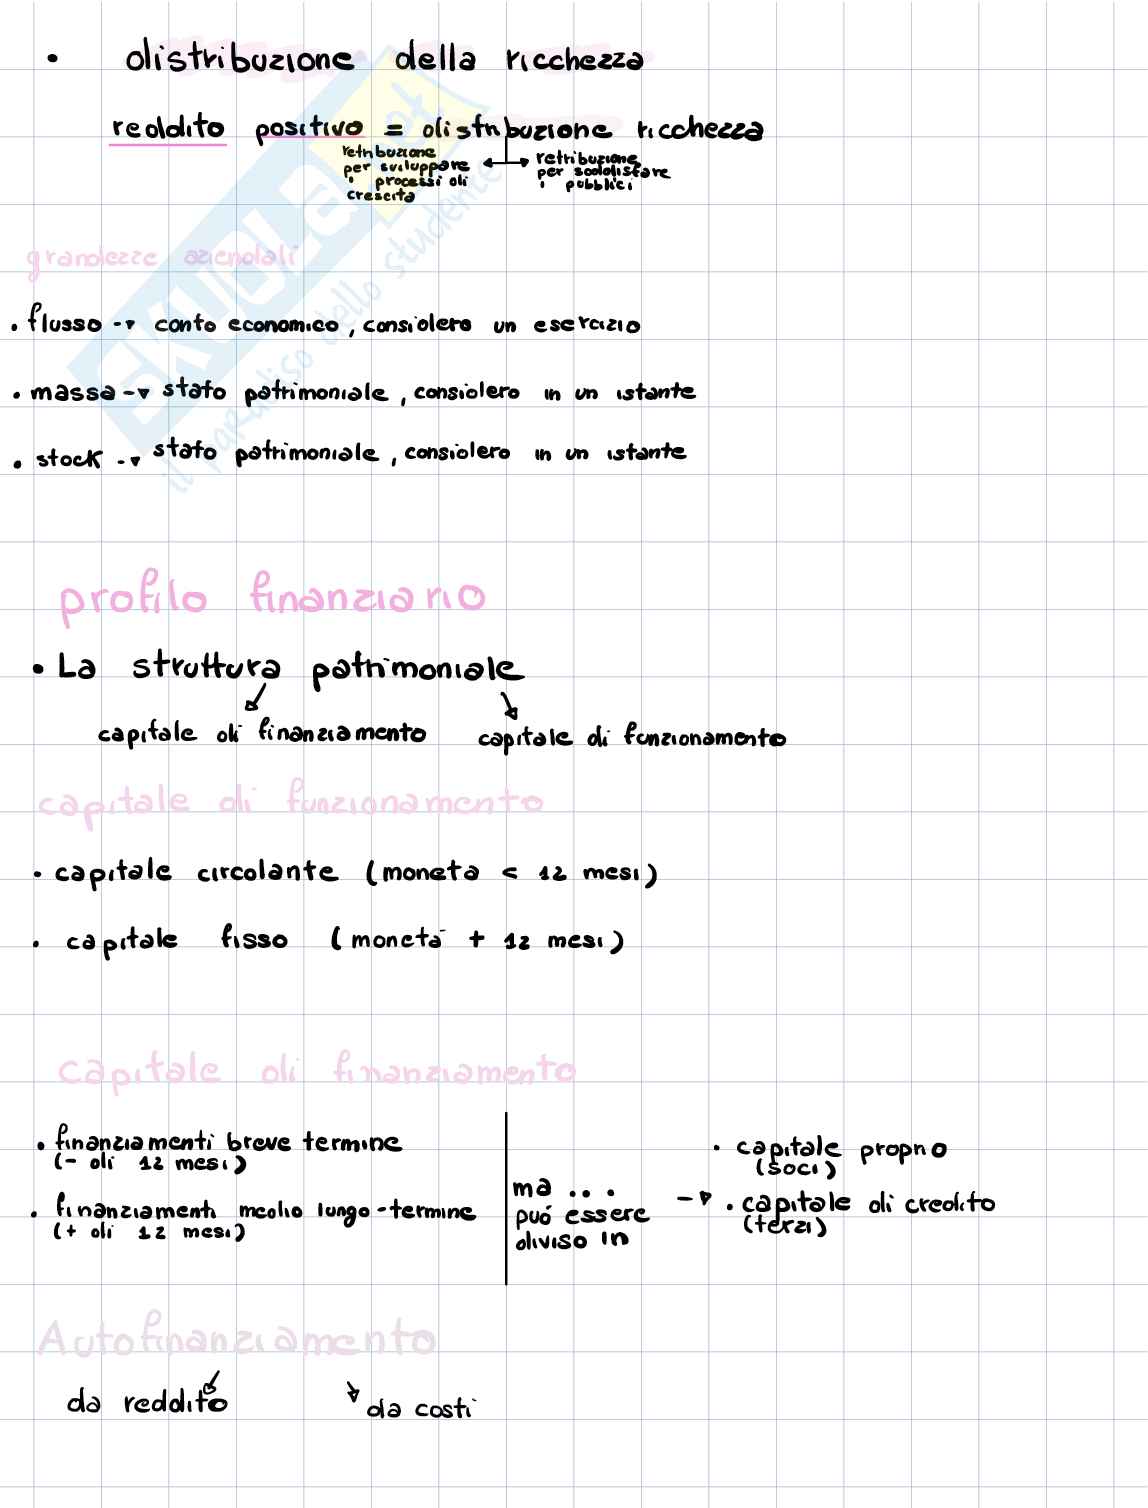 • distribuzione della ricchezza
reddito positivo = distribuzione ricchezza
retribuzione per sviluppare i processi di crescita
retribuzione per soddisfare i pubblici
grandezze aziendali
• flusso -> conto economico, considero un esercizio
• massa -> stato patrimoniale, considero in un istante
• stock -> stato patrimoniale, considero in un istante
profilo finanziario
• La struttura patrimoniale
capitale di finanziamento
capitale di funzionamento
capitale di funzionamento
• capitale circolante (moneta < 12 mesi)
• capitale fisso (moneta + 12 mesi)
capitale di finanziamento
• finanziamenti breve termine
(- di 12 mesi)
• finanziamenti medio lungo-termine
(+ di 12 mesi)
ma ...
può essere
diviso in
->
• capitale proprio
(soci)
• capitale di credito
(terzi)
Autofinanziamento
da reddito
da costi
SKUOLA.net
il paradiso dello studente